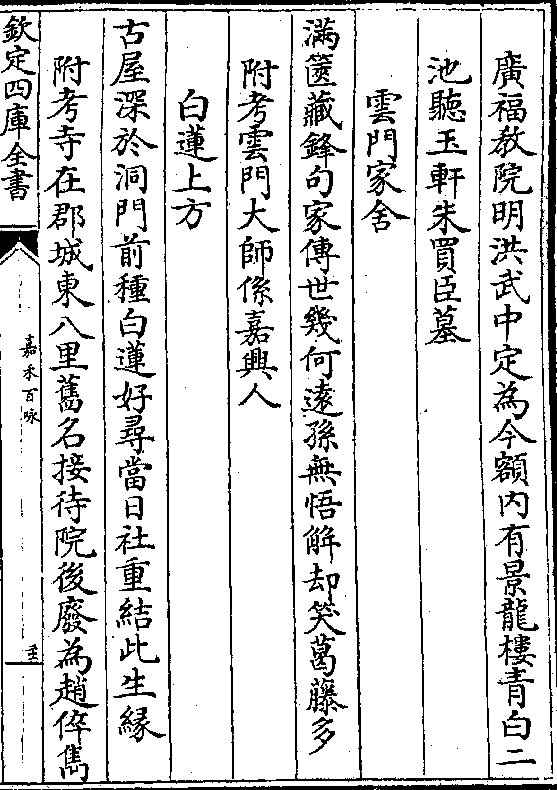 廣福教院明洪武中定為今額內有景龍樓青白二
池聽玉軒朱買臣墓
雲門家舍
滿篋藏鋒句家傳世幾何遠孫無悟解却笑葛藤多
附考雲門大師係嘉興人
白蓮上方
古屋深於洞門前種白蓮好尋當日社重結此生緣
附考寺在郡城東八里舊名接待院後廢為趙倅雋
欽定四庫全書
嘉禾百咏